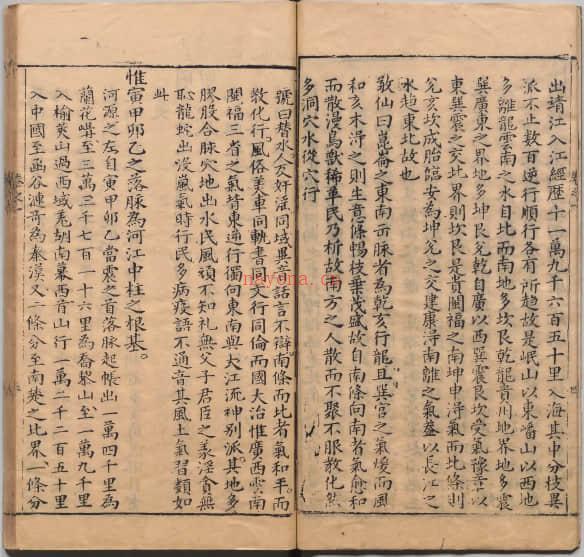 出靖江入江經歷十一萬九千六百五十里入海其中分枝異
派不止數百逆行順行各有所趨故是岷山以東嶓山以西地
多離龍雲南之水自北而南地多坎艮乾龍貴川地界地多震
巽廣東之界地多坤艮兌乾自廣以西巽震艮坎受氣豫章以
東巽震之交北界則坎艮是貴閩福之南坤申淂氣而北條則
兌亥坎成胎臨安為坤兌之交建康淂南離之氣蓋以長江之
水趋東北故也
敎仙曰崑崙之東南而脉者為乾亥行龍且巽宫之氣煖而風
和亥木淂之則生意條暢枝垂茂盛故自南條向南者氣愈和
而散漫鳥獸稀革民乃析故南方之人散而不聚不服教化然
多洞穴水從穴行
號曰朁水人交奸淫同域異音話言不辯南條而北者氣和平而
敎化行風俗美車同軌書同文行同倫而國大治惟廣西雲南
閩福三者之氣皆東逆行獨向東南與大江流神别派其地多
膠股合脉穴地出水民風頑不知礼無父子君臣之義淫貪無
恥龍蛇出沒嵐氣時行民多病疫語不通音其風土氣習類如
此
惟寅甲卯乙之落脉為河江中柱之根基
河源之左自寅甲卯乙當震之首落脉起帳出一萬四千里為
蘭花嶹至三萬三千七百一十六里為喬攀山至一萬九千里
入榆莢山過西域㐬胡南幕西音山行一萬二千二百五十里
入中國至函谷漣奇為秦漢又二條分至南燕之北界一條分
nayona.cn